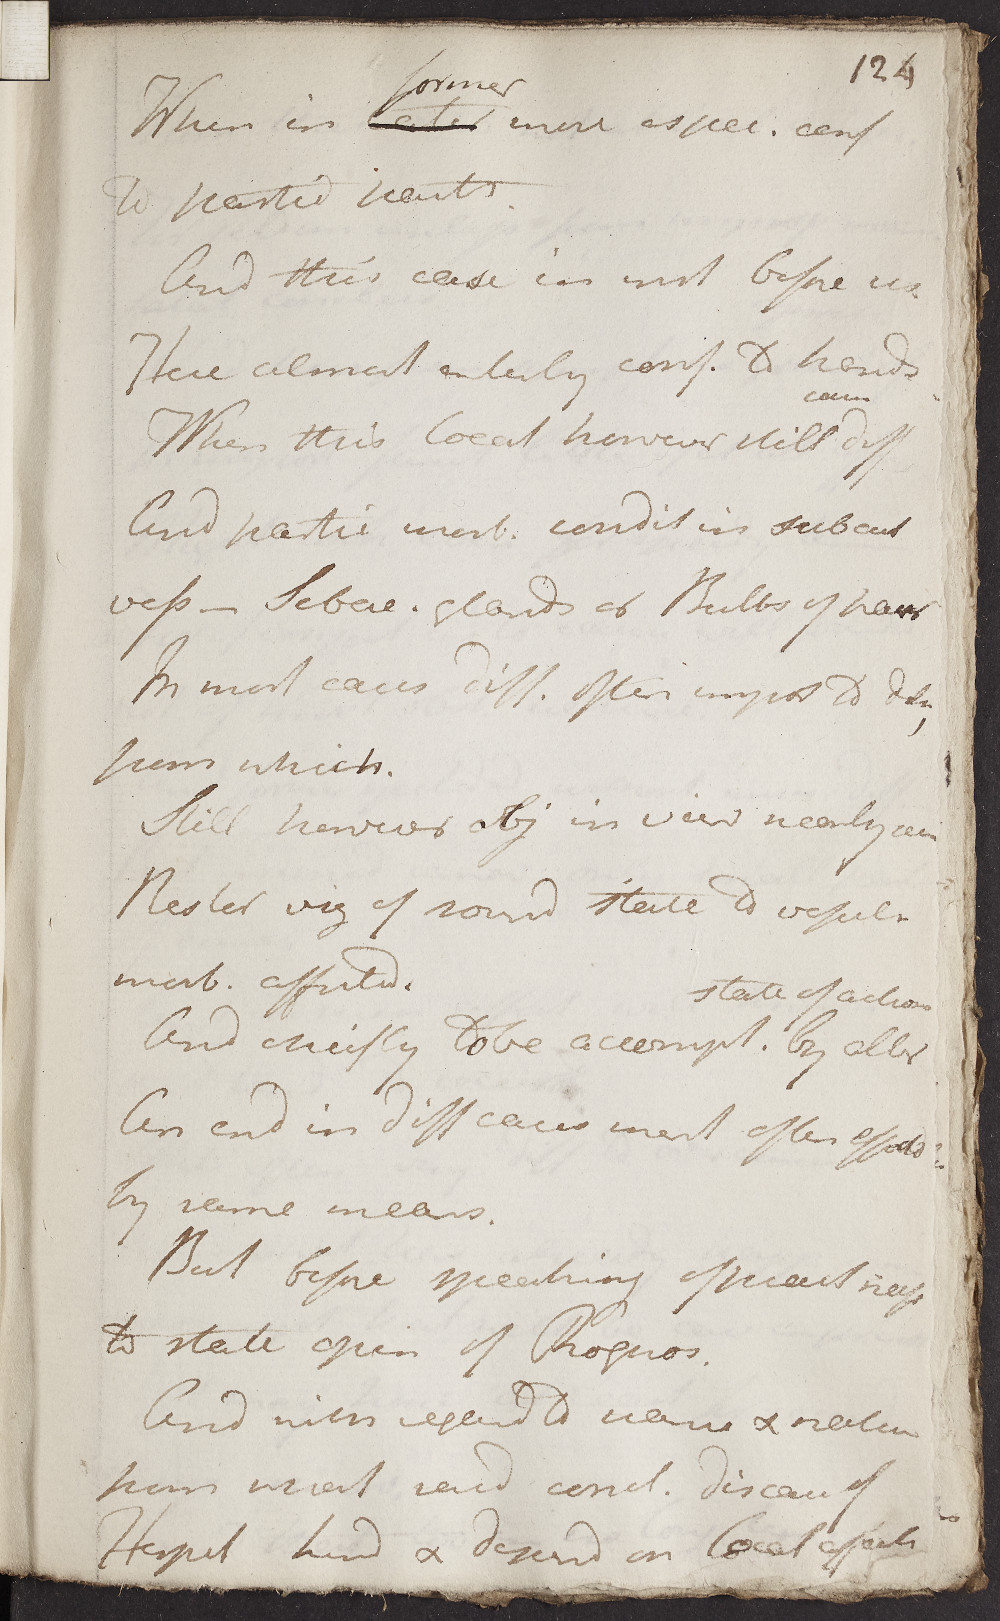 124
former
When in later more espec. conf
to partic parts.
And this case in most before us.
Here almost enterly conf. to hands
caus
When this local however still diff
And partic morb. condit in subcut
vess — Sebac. glands or Bulbs of hair
In most cases diff. often impos to det,
from which.
Still however obj in view nearly
Restor vig of sound state to vessels
morb. affected.
state of action
And chiefly to be accompl. by alter
An end in diff cases most often
by same means.
But before speaking of treat necess
to state opin of Prognos.
And with regard to name & nature
from what said concl. disease of
Herpet kind & depend on local affect